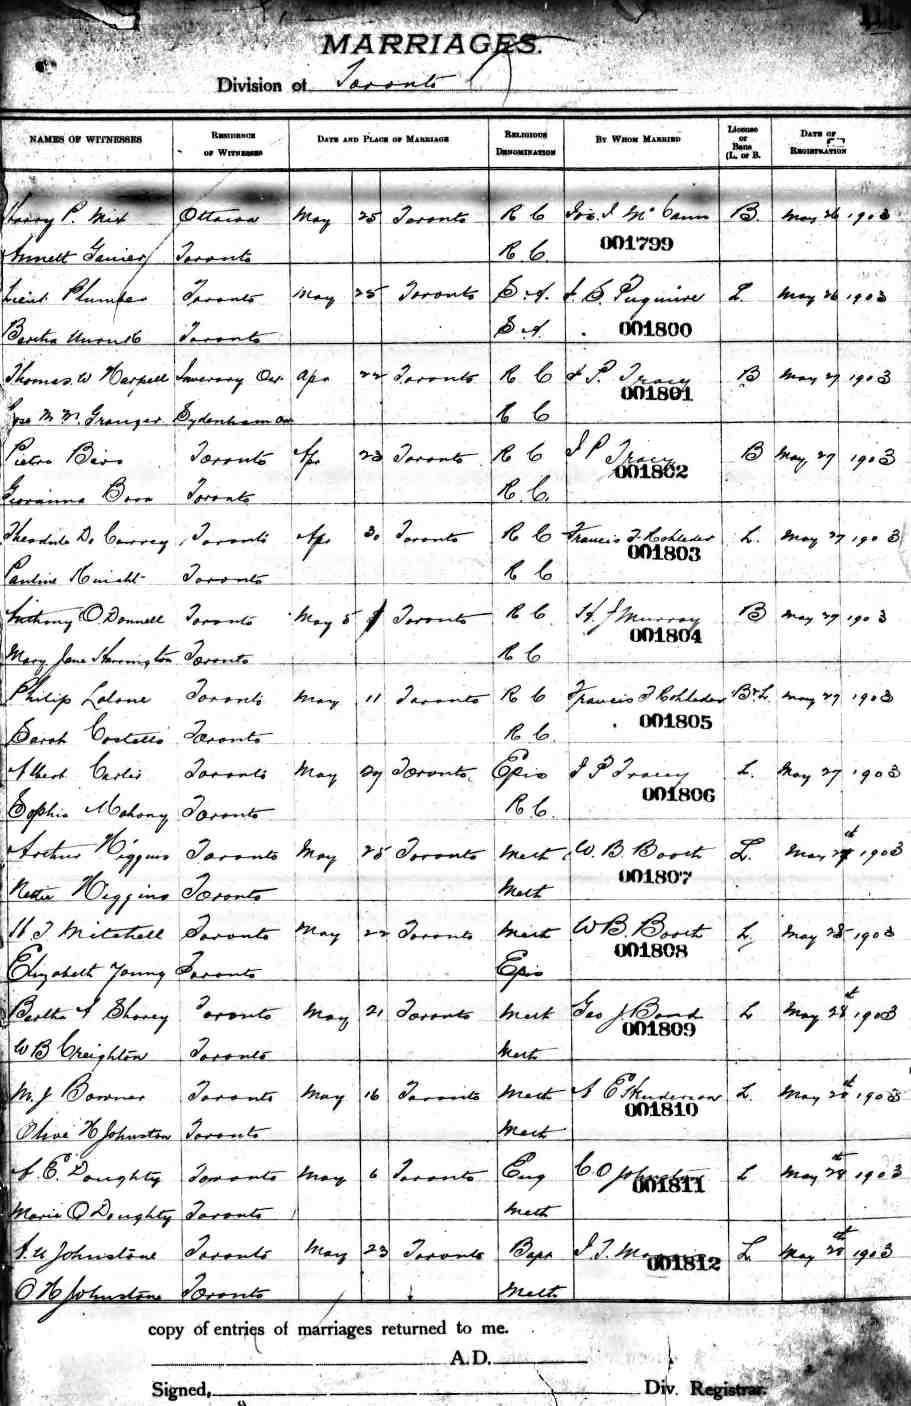 MARRIAGES.
Division of Toronto
NAMES OF WITNESSES RESIDENCE OF WITNESSES DATE AND PLACE OF MARRIAGE RELIGIOUS DENOMINATION BY WHOM MARRIED License or Bans (L. or B. DATE OF REGISTRATION
Harry P. Mix Ottawa May 25 Toronto R C Jos. J Mc Cann B. May 26 1903
Annett Toronto R C. 001799
Lieut. Plumber Toronto May 25 Toronto S. A. L. May 26 1903
Bertha Toronto S A. 001800
Thomas W Harpell Inverary Apr 22 Toronto R C J P. Tracy B May 27 1903
001801
M M. Granger Sydenham R C
Pietro Toronto Apr 23 Toronto R C J P Tracy B May 27 1903
001802
Giovanna Toronto R. C.
D. Toronto Apr 30 Toronto R C Francis F Rohleder L. May 27 1903
001803
Pauline Knight Toronto R C
Anthony O Donnell Toronto May 5 Toronto R C H. J Murray B May 27 1903
001804
Mary Jane Harrington Toronto R C
Philip Lalone Toronto May 11 Toronto R C Francis F Rohleder B & L. May 27 1903
001805
Sarah Costello Toronto R C.
Albert Toronto May Toronto Epis J P Tracey L. May 27 1903
001806
Sophia Mahony Toronto R C.
Arthur Higgins Toronto May 25 Toronto Meth W. B. Booth L. May th 1903
001807
Nettie Higgins Toronto Meth
H J Mitchell Toronto May 22 Toronto Meth W B. Booth L. May 28 1903
001808
Elizabeth Young Toronto Epis
Bertha A Shorey Toronto May 21 Toronto Meth Geo J Bond L May 28th 1903
001809
W B Creighton Toronto Meth
M. J Bowner Toronto May 16 Toronto Meth L. May 28th 1903
001810
Olive H Johnston Toronto Meth
A. E. Doughty Toronto May 6 Toronto Eng C O Johnston L May 28th 1903
001811
Marie O Doughty Toronto Meth
Johnstone Toronto May 23 Toronto Bapt J. T. L May 28th 1903
001812
O H Johnstone Toronto Meth.
copy of entries of marriages returned to me.
A.D.
Signed, Div. Registrar.